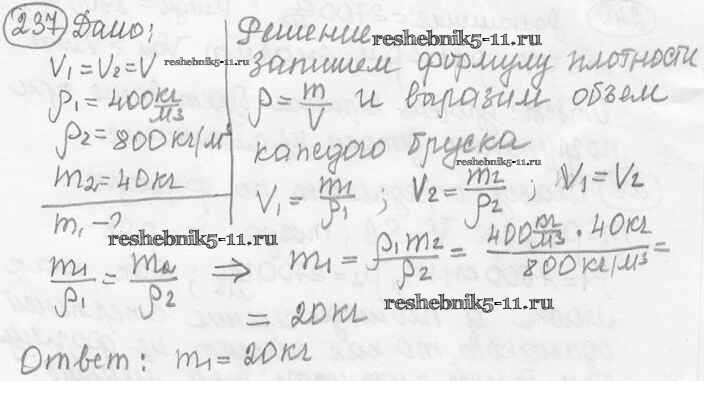 237 Дано:
V₁ = V₂ = V
ρ₁ = 400 кг/м3
ρ₂ = 800 кг/м³
m₂ = 40 кг
m₁ - ?
m₁/ρ₁ = m₂/ρ₂ ⇒
Решение
reshebnik5-11.ru
reshebnik5-11.ru
Запишем формулу плотности
ρ = m/V и выразим объем
каждого бруска
reshebnik5-11.ru
V₁ = m₁/ρ₁ ; V₂ = m₂/ρ₂ ; V₁ = V₂
reshebnik5-11.ru
m₁ = ρ₁m₂/ρ₂ = 400 кг/м3 · 40 кг / 800 кг/м³ =
reshebnik5-11.ru
= 20 кг
Ответ: m₁ = 20 кг